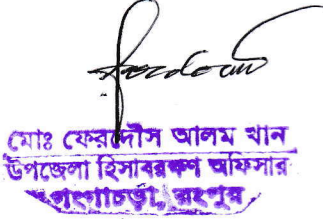 মোঃ ফেরদৌস আলম খান
উপজেলা হিসাবরক্ষণ অফিসার
গংগাচড়া, রংপুর